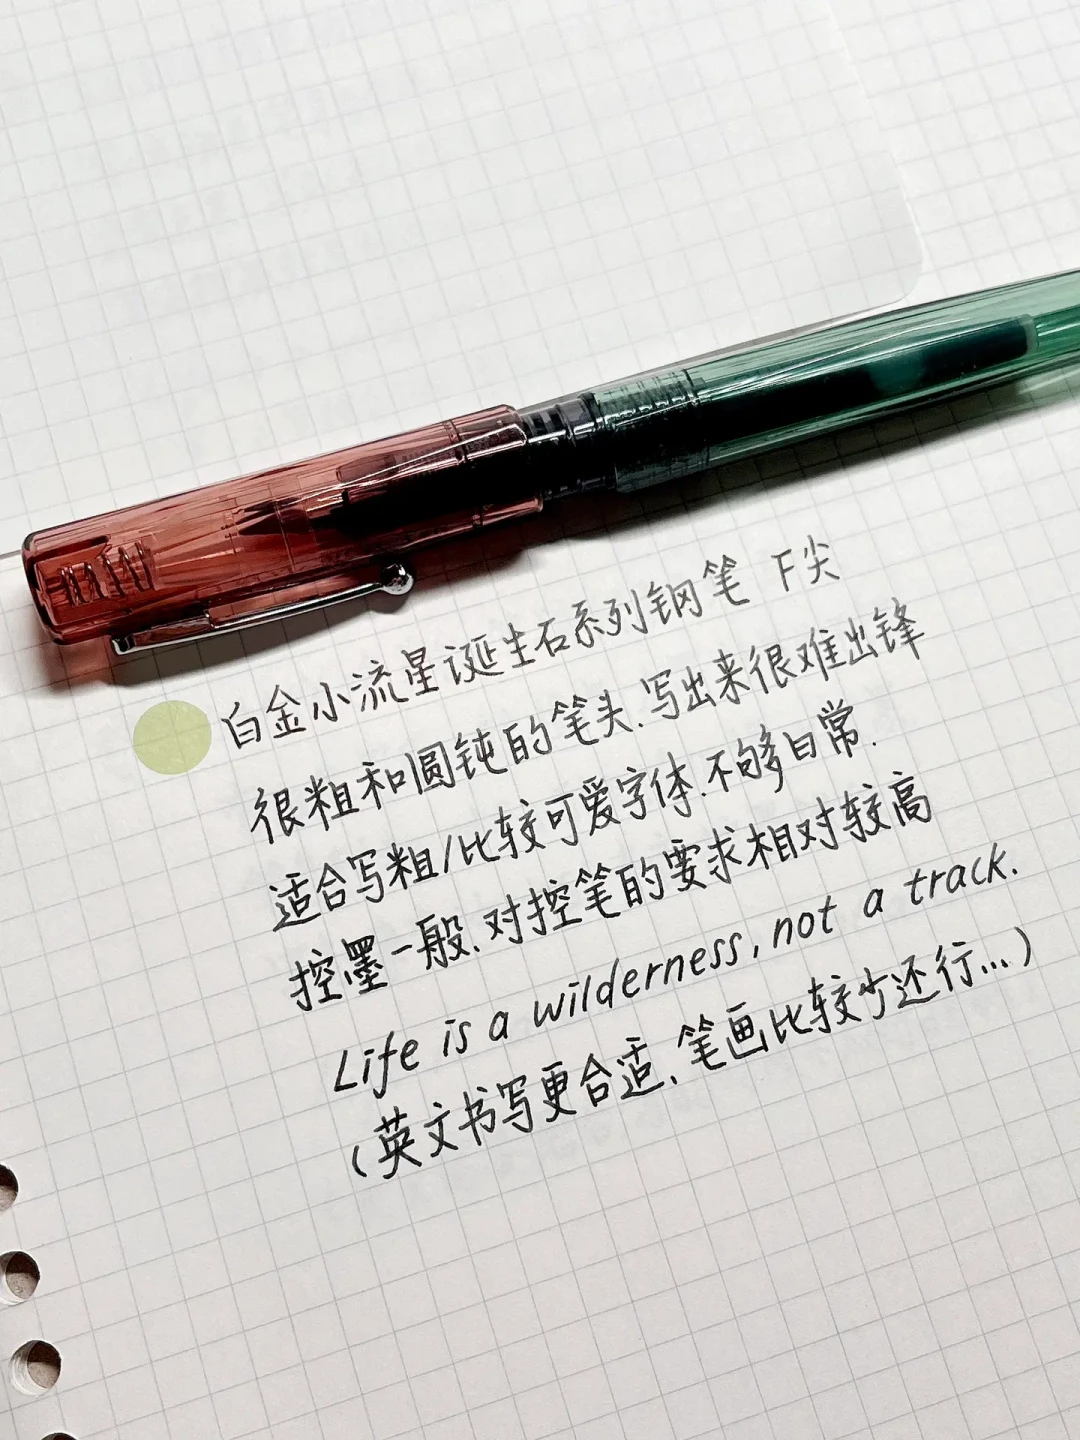 白金小流星诞生石系列钢笔 F尖
很粗和圆钝的笔头.写出来很难出锋
适合写粗/比较可爱字体.不够日常.
控墨一般.对控笔的要求相对较高
Life is a wilderness, not a track.
(英文书写更合适.笔画比较少还行...)